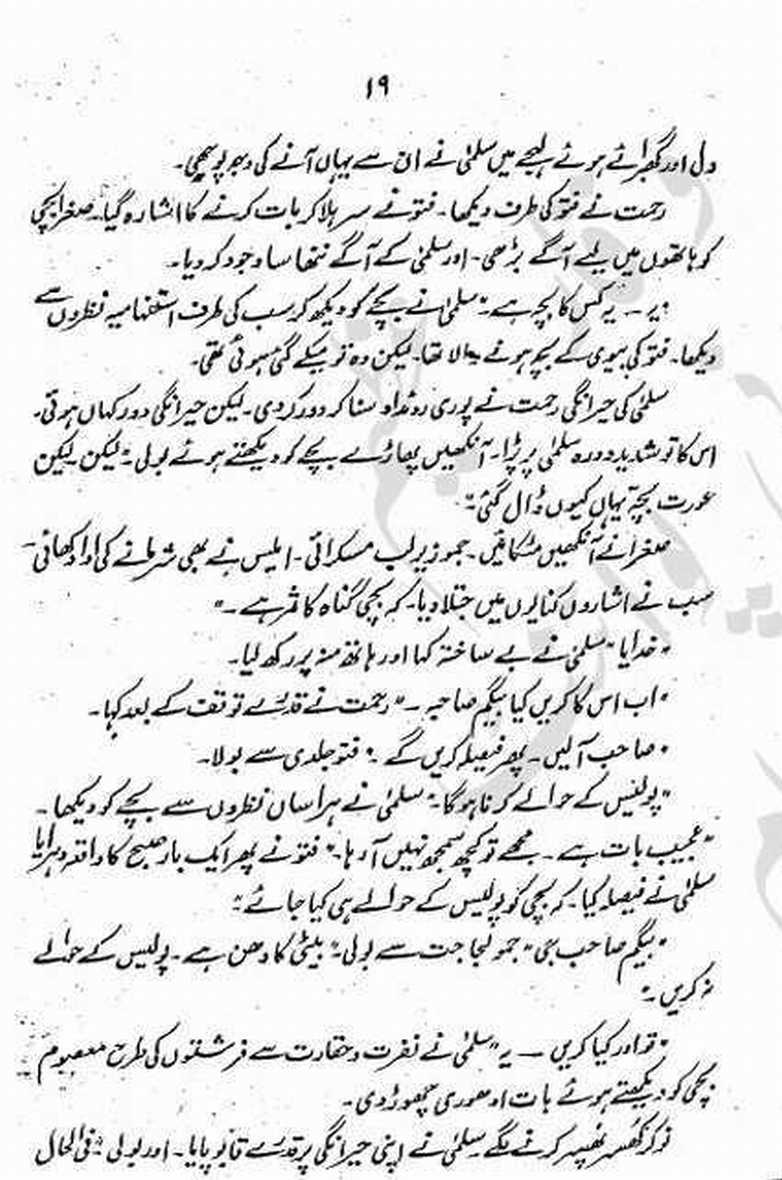 ۱۹
دل اور گھبرائے ہوئے لہجے میں سلمیٰ نے ان سے یہاں آنے کی وجہ پوچھی۔
رحمت نے فتو کی طرف دیکھا۔ فتو نے سر ہلا کر بات کرنے کا اشارہ کیا۔ صغرا بچی
کو ہاتھوں میں لیے آگے بڑھی۔ اور سلمیٰ کے آگے ننھا سا وجود کر دیا۔
"یہ ــ یہ کس کا بچہ ہے۔" سلمیٰ نے بچے کو دیکھ کر سب کی طرف استفہامیہ نظروں سے
دیکھا۔ فتو کی بیوی کے بچہ ہونے والا تھا۔ لیکن وہ تو میکے گئی ہوئی تھی۔
سلمیٰ کی حیرانگی رحمت نے پوری روئداد سنا کر دور کر دی۔ لیکن حیرانگی دور کہاں ہوتی۔
اس کا تو شدید دورہ سلمیٰ پر پڑا۔ آنکھیں پھاڑے بچے کو دیکھتے ہوئے بولی۔ "لیکن لیکن
عورت بچہ یہاں کیوں ڈال گئی۔"
صغرا نے آنکھیں مٹکائیں۔ جمو زیرِ لب مسکرائی۔ ابلیس نے بھی شرمانے کی ادا دکھائی۔
سب نے اشاروں کنایوں میں جتلا دیا۔ کہ بچی گناہ کا ثمر ہے۔"
"خدایا" سلمیٰ نے بے ساختہ کہا اور ہاتھ منہ پر رکھ لیا۔
"اب اس کا کریں کیا بیگم صاحبہ۔" رحمت نے قدرے توقف کے بعد کہا۔
"صاحب آ لیں۔ پھر فیصلہ کریں گے۔" فتو جلدی سے بولا۔
"پولیس کے حوالے کرنا ہو گا۔" سلمیٰ نے ہراساں نظروں سے بچے کو دیکھا۔
"عجیب بات ہے۔ مجھے تو کچھ سمجھ نہیں آ رہا۔" فتو نے پھر ایک بار صبح کا واقعہ دہرایا
سلمیٰ نے فیصلہ کیا۔ کہ بچی کو پولیس کے حوالے ہی کیا جائے۔"
"بیگم صاحب جی" جمو لجاجت سے بولی۔ "بیٹی کا دھن ہے۔ پولیس کے حوالے
نہ کریں۔"
"تو اور کیا کریں ــ یہ" سلمیٰ نے نفرت و حقارت سے فرشتوں کی طرح معصوم
بچی کو دیکھتے ہوئے بات ادھوری چھوڑ دی۔
نوکر کھُسر پھُسر کرنے لگے۔ سلمیٰ نے اپنی حیرانگی پر قدرے قابو پایا۔ اور بولی "فی الحال